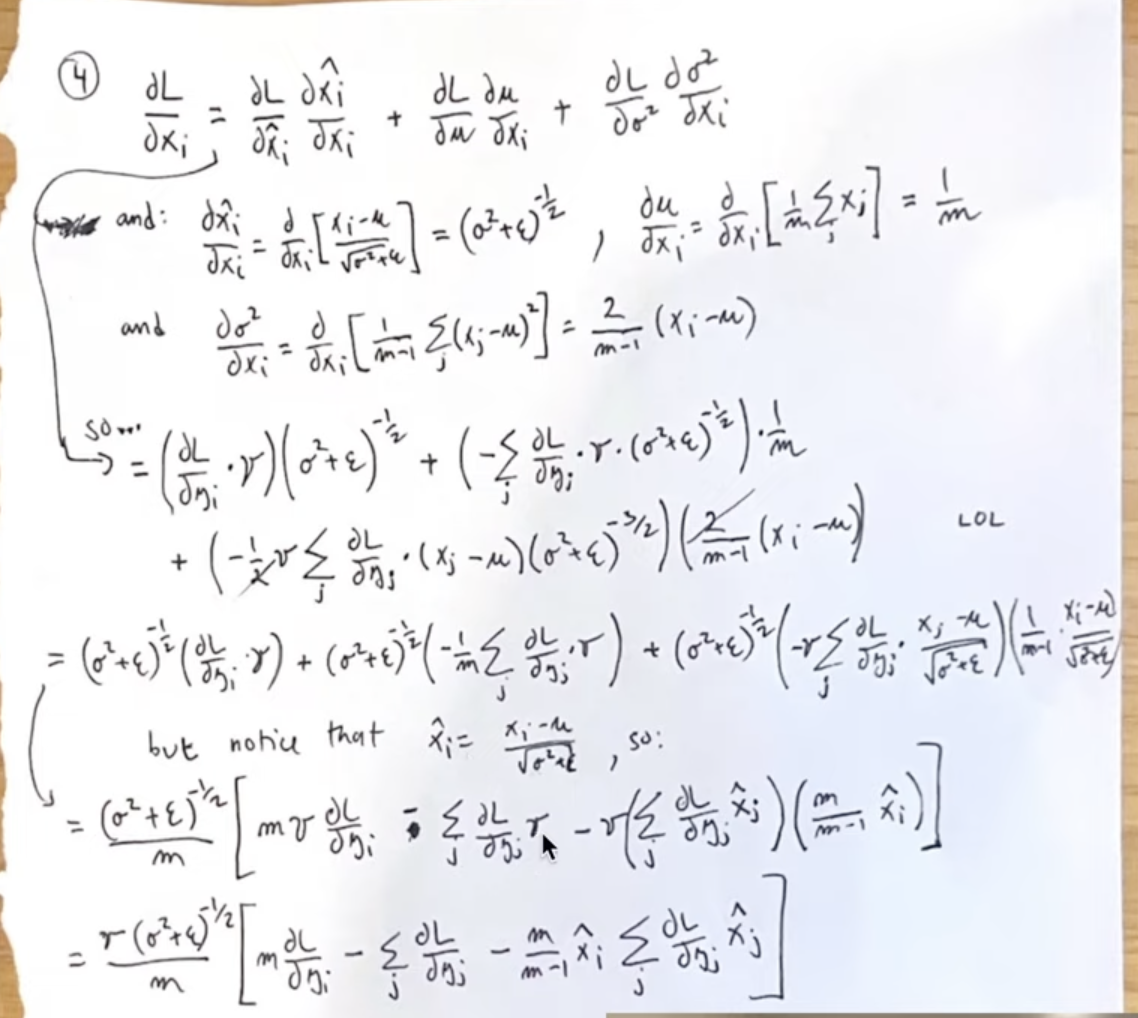 ④ ∂L/∂xᵢ = ∂L/∂x̂ᵢ ∂x̂ᵢ/∂xᵢ + ∂L/∂μ ∂μ/∂xᵢ + ∂L/∂σ² ∂σ²/∂xᵢ
and: ∂x̂ᵢ/∂xᵢ = ∂/∂xᵢ [(xᵢ-μ)/√(σ²+ε)] = (σ²+ε)^(-1/2) , ∂μ/∂xᵢ = ∂/∂xᵢ [1/m Σⱼ xⱼ] = 1/m
and ∂σ²/∂xᵢ = ∂/∂xᵢ [1/(m-1) Σⱼ(xⱼ-μ)²] = 2/(m-1) (xᵢ-μ)
so...
= (∂L/∂yᵢ · γ)(σ²+ε)^(-1/2) + (-Σⱼ ∂L/∂yⱼ · γ · (σ²+ε)^(-1/2)) · 1/m
+ (-1/2 γ Σⱼ ∂L/∂yⱼ · (xⱼ-μ)(σ²+ε)^(-3/2)) (2/(m-1) (xᵢ-μ)) LOL
= (σ²+ε)^(-1/2) (∂L/∂yᵢ · γ) + (σ²+ε)^(-1/2) (-1/m Σⱼ ∂L/∂yⱼ · γ) + (σ²+ε)^(-1/2) (-γ Σⱼ ∂L/∂yⱼ · (xⱼ-μ)/√(σ²+ε)) (1/(m-1) · (xᵢ-μ)/√(σ²+ε))
but notice that x̂ᵢ = (xᵢ-μ)/√(σ²+ε) , so:
= (σ²+ε)^(-1/2)/m [mγ ∂L/∂yᵢ - Σⱼ ∂L/∂yⱼ γ - γ(Σⱼ ∂L/∂yⱼ x̂ⱼ)(m/(m-1) x̂ᵢ)]
= γ(σ²+ε)^(-1/2)/m [m ∂L/∂yᵢ - Σⱼ ∂L/∂yⱼ - m/(m-1) x̂ᵢ Σⱼ ∂L/∂yⱼ x̂ⱼ]